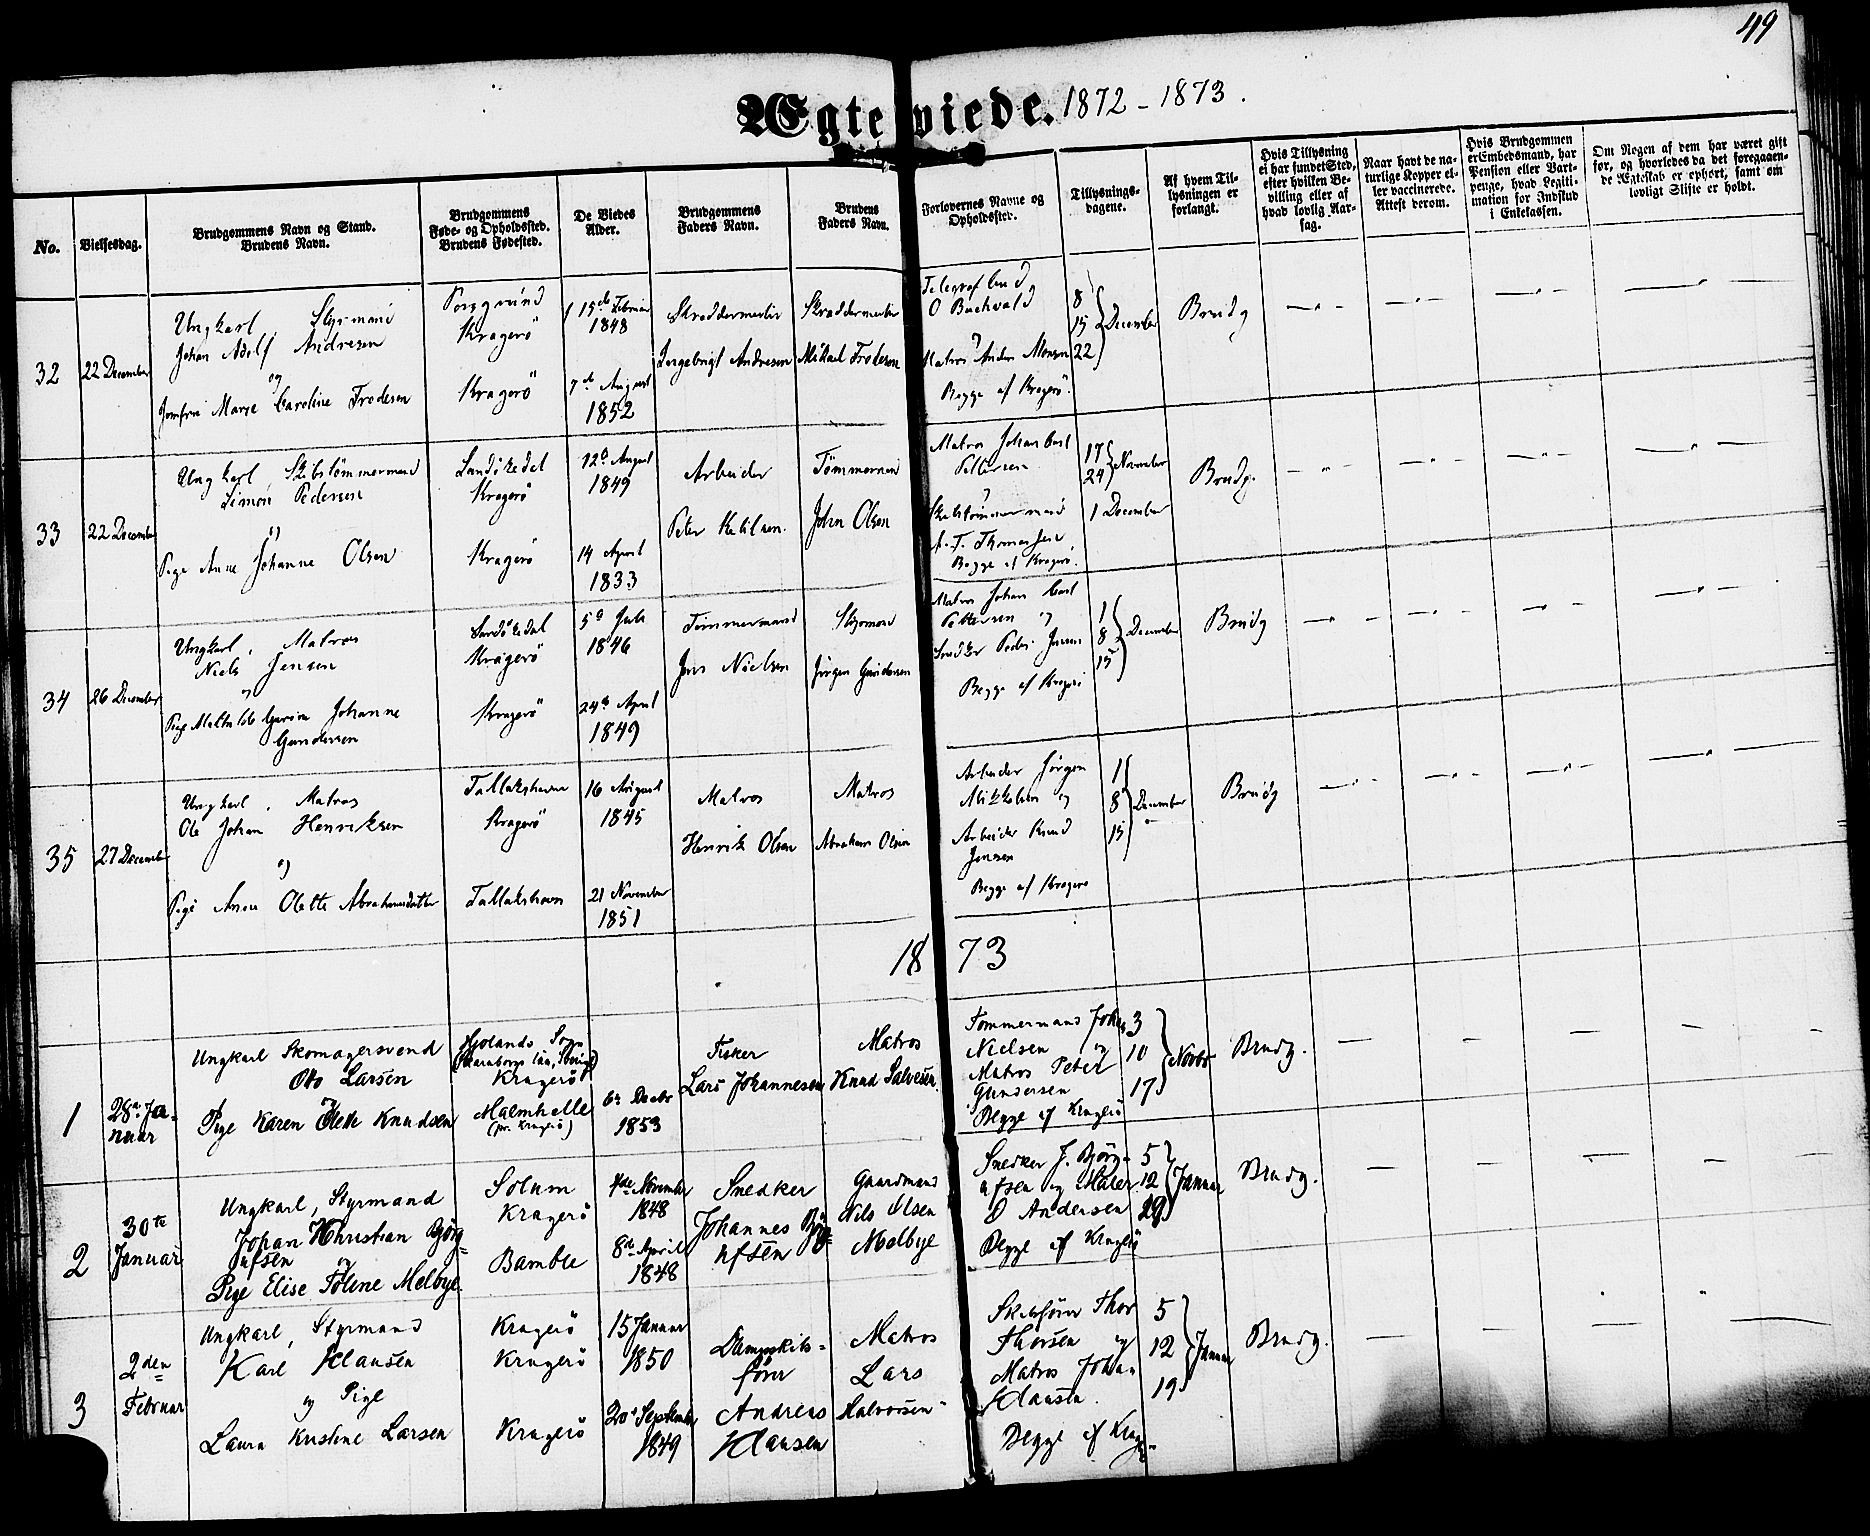 49
Ægteviede. 1872 - 1873.
No.
Vielsesdag.
Brudgommens Navn og Stand.
Brudens Navn.
Brudgommens
Føde- og Opholdssted.
Brudens Fødested.
De Viedes
Alder.
Brudgommens
Faders Navn.
Brudens
Faders Navn.
Forlovernes Navne og
Opholdssted.
Tillysnings-
dagene.
Af hvem Til-
lysningen er
forlangt.
Hvis Tillysning
ei har fundet Sted,
efter hvilken Be-
villing eller af
hvad lovlig Aar-
sag.
Naar havt de na-
turlige Kopper el-
ler vaccinerede.
Attest derom.
Hvis Brudgommen
er Embedsmand, har
Pension eller Vart-
penge, hvad Legiti-
mation for Indskud
i Enkekassen.
Om Nogen af dem har været gift
før, og hvorledes da det foregaaen-
de Ægteskab er ophørt, samt om
lovligt Skifte er holdt.
32
22 December
Ungkarl Styrmand
Johan Adolf Andresen
og
Jomfru Marie Caroline Frodesen
Porsgrund
Kragerö
Kragerö
15de Februar
1848
7de August
1852
Skræddermester
Ingebrigt Andresen
Skræddermester
Mikael Frodesen
O Buchvald
Matros Anders Monsen
Begge af Kragerö.
8
15
22
December
Brudg
33
22 December
Ungkarl, Skibstömmermand
Simon Pedersen
og
Pige Anne Johanne Olsen
Sandökedal
Kragerö
Kragerö
12te August
1849
14 April
1833
Arbeider
Peter
Tömmermand
John Olsen
Matros Johan Carl
Pettersen
og
Skibstömmermand
Thomassen
Begge af Kragerö.
17
24
November
1 December
Brudg.
34
26 December
Ungkarl, Matros
Niels Jensen
og
Pige Mathilde Johanne
Gundersen
Sandökedal
Kragerö
Kragerö
5te Juli
1846
24de April
1849
Tömmermand
Jens Nielsen
Styrmand
Jörgen Gundersen
Matros Johan Carl
Pettersen og
Snedker Peder Jensen
Begge af Kragerö
1
8
15
December
Brudg
35
27 December
Ungkarl, Matros
Ole Johan Henriksen
og
Pige Anne Olette Abrahamsdatter
Tallakshavn
Kragerö
Tallakshavn
16 August
1845
21 November
1851
Matros
Henrik Olsen
Matros
Abraham Olsen
Arbeider Jörgen
Mikkelsen og
Arbeider Knud
Jensen
Begge af Kragerö
1
8
15
December
Brudg
1873
1
28de Ja-
nuar
Ungkarl Skomagersvend
Otto Larsen
og
Pige Karen Olette Knudsen
Hjolands Sogn
Kragerö
Malmhelle
(pr. Kragerö)
6te Decbr
1853
Fisker
Lars Johannesen
Matros
Knud Salvesen
Tömmermand Johan
Nielsen og
Matros Peter
Gundersen
Begge af Kragerö
3
10
17
Novbr
Brudg.
2
30te
Januar
Ungkarl, Styrmand
Johan Christian Björg-
ufsen
og
Pige Elise Toline Melbye
Solum
Kragerö
Bamble
4de November
1848
8de April
1848
Snedker
Johannes Björg-
ufsen
Gaardmand
Nils Olsen
Melbye
Snedker J. Björg-
ufsen og Maler
O Andersen
Begge af Kragerö
5
12
19
Januar
Brudg.
3
2den
Februar
Ungkarl, Styrmand
Karl Klausen
og Pige
Laura Kristine Larsen
Kragerö
Kragerö
Kragerö
15 Januar
1850
20de September
1849
Dampskibs-
förer
Andreas
Klausen
Matros
Lars
Halvorsen
Skibsförer Thor
Thorsen og
Matros Johan
Klausen.
Begge af Krag-
5
12
19
Januar
Brudg.